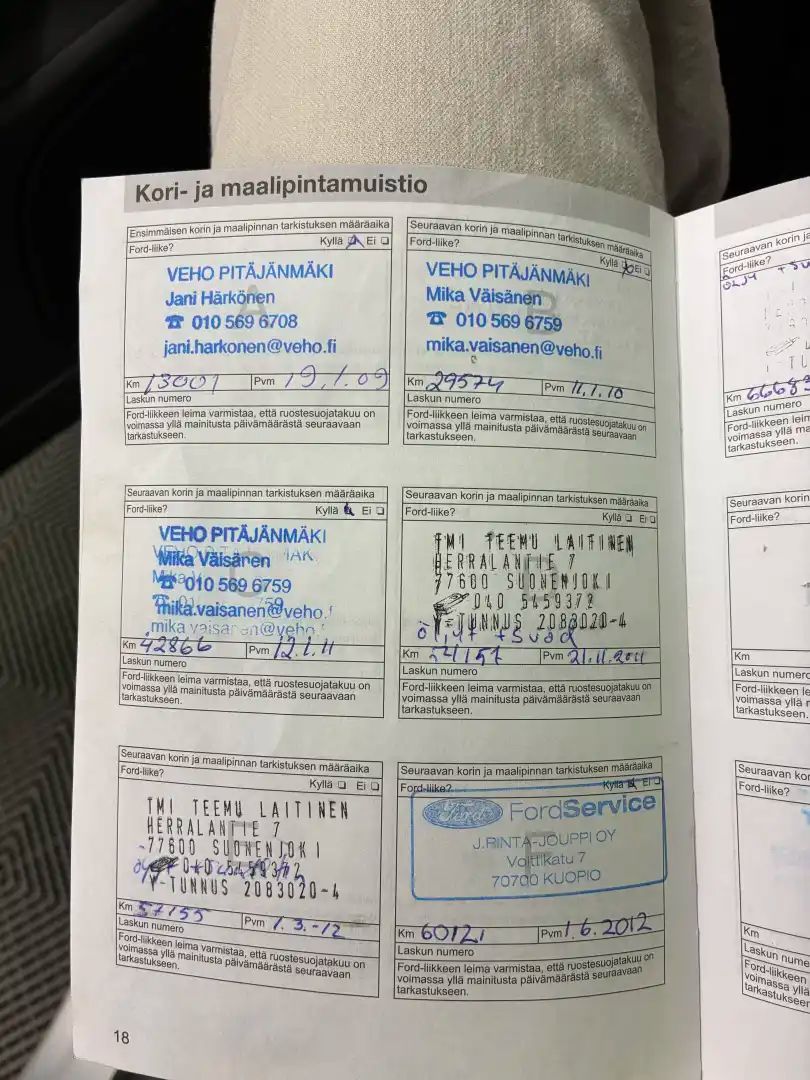 Kori- ja maalipintamuistio
Ensimmäisen korin ja maalipinnan tarkistuksen määräaika
Ford-liike?
Kyllä Ei
VEHO PITÄJÄNMÄKI
Jani Härkönen
☎ 010 569 6708
jani.harkonen@veho.fi
A
Km 13001
Pvm 19.1.09
Laskun numero
Ford-liikkeen leima varmistaa, että ruostesuojatakuu on
voimassa yllä mainitusta päivämäärästä seuraavaan
tarkastukseen.
Seuraavan korin ja maalipinnan tarkistuksen määräaika
Ford-liike?
Kyllä Ei
VEHO PITÄJÄNMÄKI
Mika Väisänen
☎ 010 569 6759
mika.vaisanen@veho.fi
B
Km 29574
Pvm 11.1.10
Laskun numero
Ford-liikkeen leima varmistaa, että ruostesuojatakuu on
voimassa yllä mainitusta päivämäärästä seuraavaan
tarkastukseen.
Seuraavan korin ja maalipinnan tarkistuksen määräaika
Ford-liike?
Kyllä Ei
VEHO PITÄJÄNMÄKI
Mika Väisänen
☎ 010 569 6759
mika.vaisanen@veho.f
mika.vaisanen@veho.f
C
Km 42866
Pvm 12.1.11
Laskun numero
Ford-liikkeen leima varmistaa, että ruostesuojatakuu on
voimassa yllä mainitusta päivämäärästä seuraavaan
tarkastukseen.
Seuraavan korin ja maalipinnan tarkistuksen määräaika
Ford-liike?
Kyllä Ei
TMI TEEMU LAITINEN
HERRALANTIE 7
77600 SUONENJOKI
040 5459372
Y-TUNNUS 2083020-4
Km 54157
Pvm 21.11.2011
Laskun numero
Ford-liikkeen leima varmistaa, että ruostesuojatakuu on
voimassa yllä mainitusta päivämäärästä seuraavaan
tarkastukseen.
Seuraavan korin ja maalipinnan tarkistuksen määräaika
Ford-liike?
Kyllä Ei
TMI TEEMU LAITINEN
HERRALANTIE 7
77600 SUONENJOKI
040 5459372
Y-TUNNUS 2083020-4
Km 57155
Pvm 1.3.-12
Laskun numero
Ford-liikkeen leima varmistaa, että ruostesuojatakuu on
voimassa yllä mainitusta päivämäärästä seuraavaan
tarkastukseen.
Seuraavan korin ja maalipinnan tarkistuksen määräaika
Ford-liike?
Kyllä Ei
Ford FordService
J.RINTA-JOUPPI OY
Voittikatu 7
70700 KUOPIO
F
Km 60121
Pvm 1.6.2012
Laskun numero
Ford-liikkeen leima varmistaa, että ruostesuojatakuu on
voimassa yllä mainitusta päivämäärästä seuraavaan
tarkastukseen.
18
Seuraavan korin ja
Ford-liike?
Km
Laskun numero
Ford-liikkeen
voimassa yllä
tarkastukseen.
Seuraavan korin
Ford-liike?
Km
Laskun
Ford-liikkeen
voimassa yllä
tarkastukseen.
Seuraavan
Ford-liike?
Km
Laskun
Ford-liikkeen
voimassa yllä